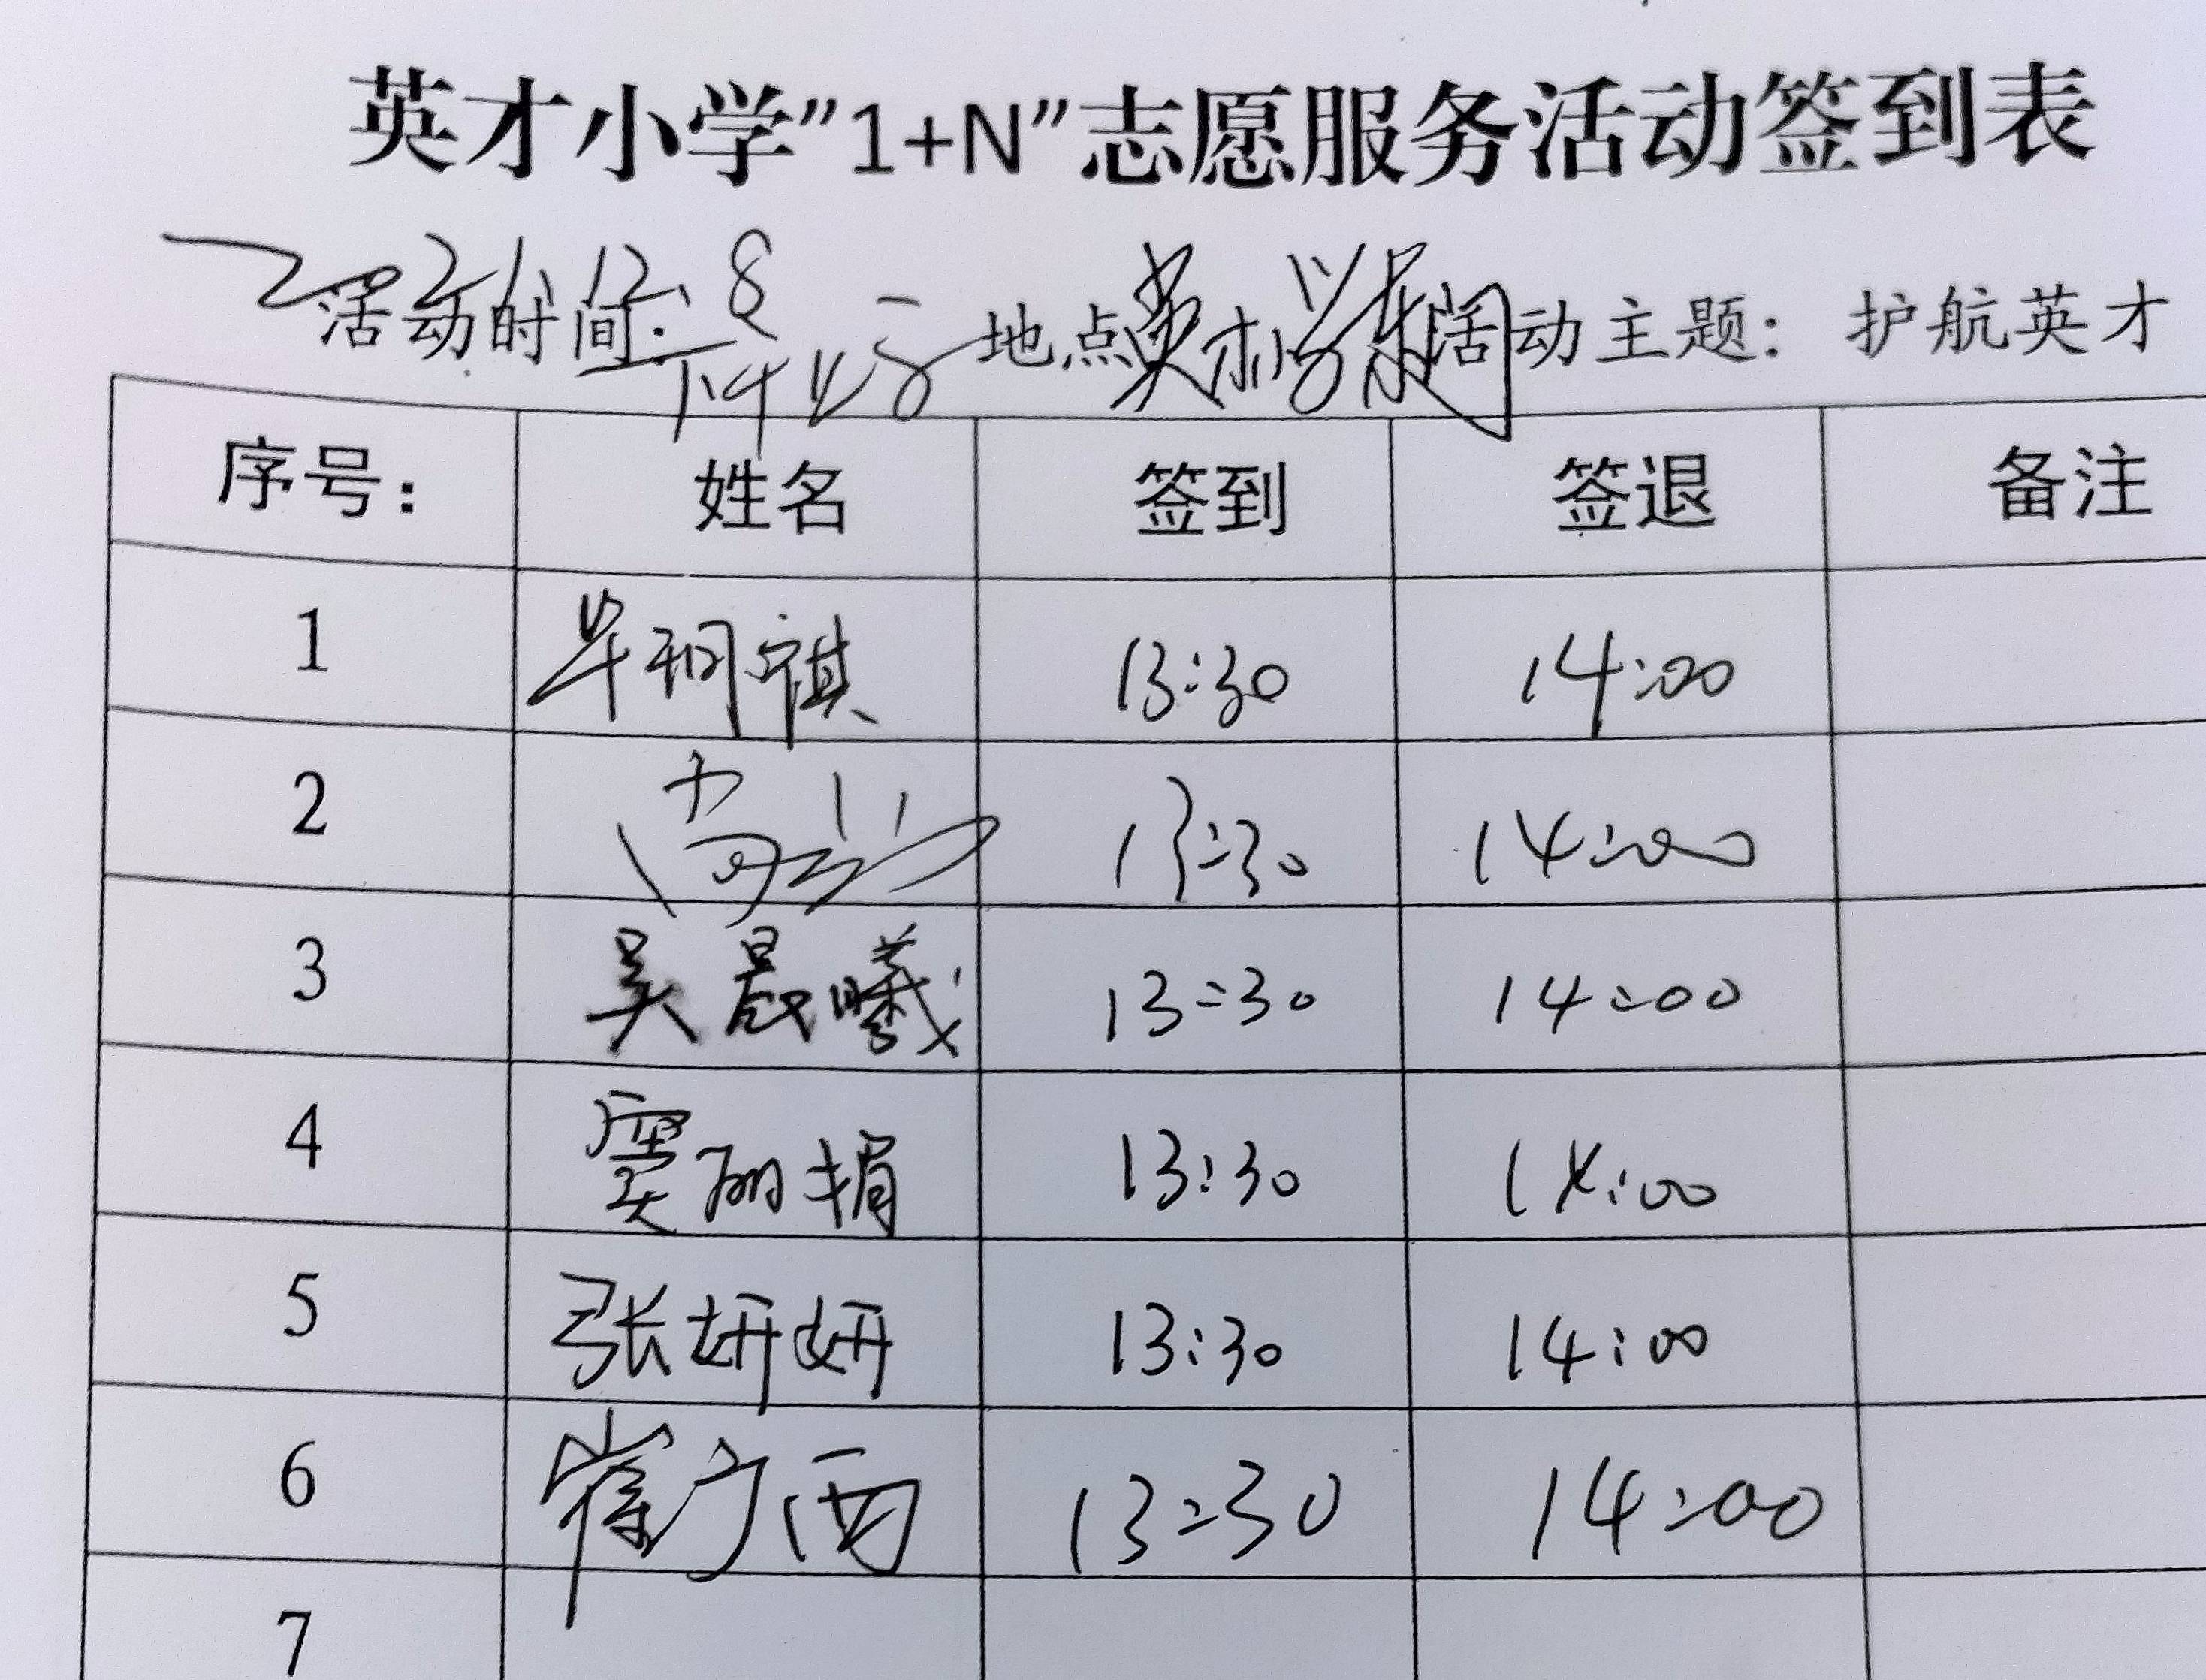 英才小学”1+N”志愿服务活动签到表
2021.12.8
活动时间: 地点 英才小学东门 活动主题: 护航英才
序号: 姓名 签到 签退 备注
1 13:30 14:00
2 13:30 14:00
3 吴晨曦 13:30 14:00
4 窦丽娟 13:30 14:00
5 张妍妍 13:30 14:00
6 崔广西 13:30 14:00
7